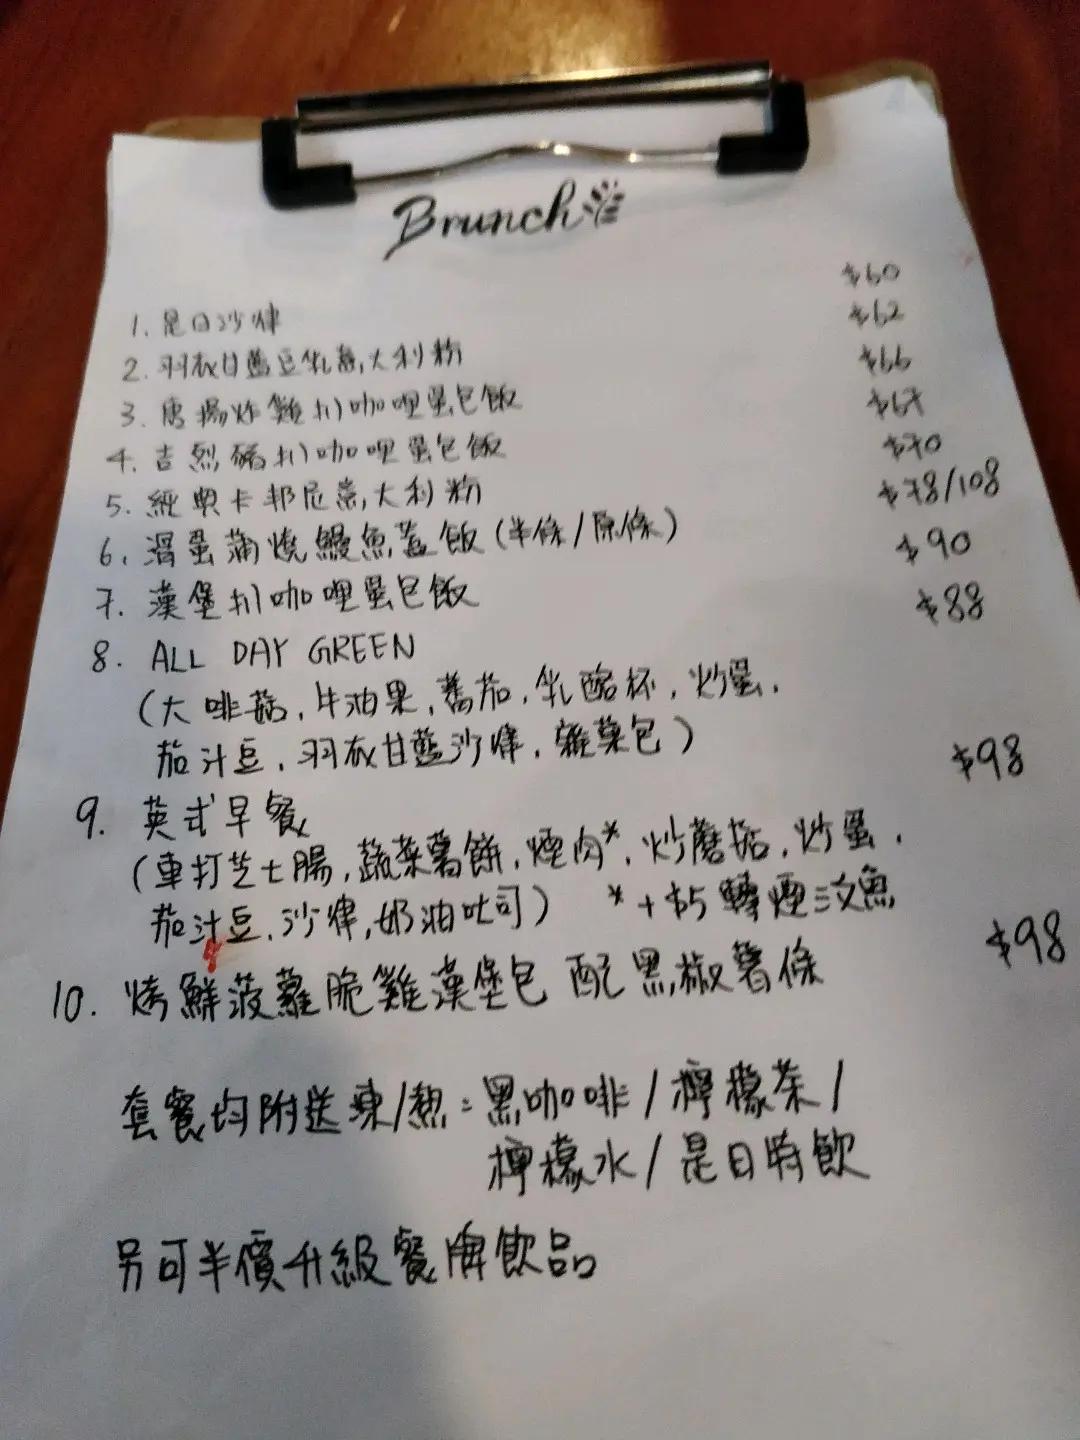 Brunch
1. 是日沙律 $60
2. 羽衣甘藍豆乳意大利粉 $62
3. 唐揚炸雞扒咖哩蛋包飯 $66
4. 吉烈豬扒咖哩蛋包飯 $67
5. 經典卡邦尼意大利粉 $70
6. 滑蛋蒲燒鰻魚蓋飯(半條/原條) $78/108
7. 漢堡扒咖哩蛋包飯 $90
8. ALL DAY GREEN $88
(大啡菇,牛油果,蕃茄,乳酪杯,炒蛋,
茄汁豆,羽衣甘藍沙律,雜菜包)
9. 英式早餐 $98
(車打芝士腸,蔬菜薯餅,煙肉*,炒蘑菇,炒蛋,
茄汁豆,沙律,奶油吐司) *+$5轉煙三文魚
10. 烤鮮菠蘿脆雞漢堡包 配黑椒薯條 $98
套餐均附送凍/熱:黑咖啡/檸檬茶/
檸檬水/是日特飲
另可半價升級餐牌飲品